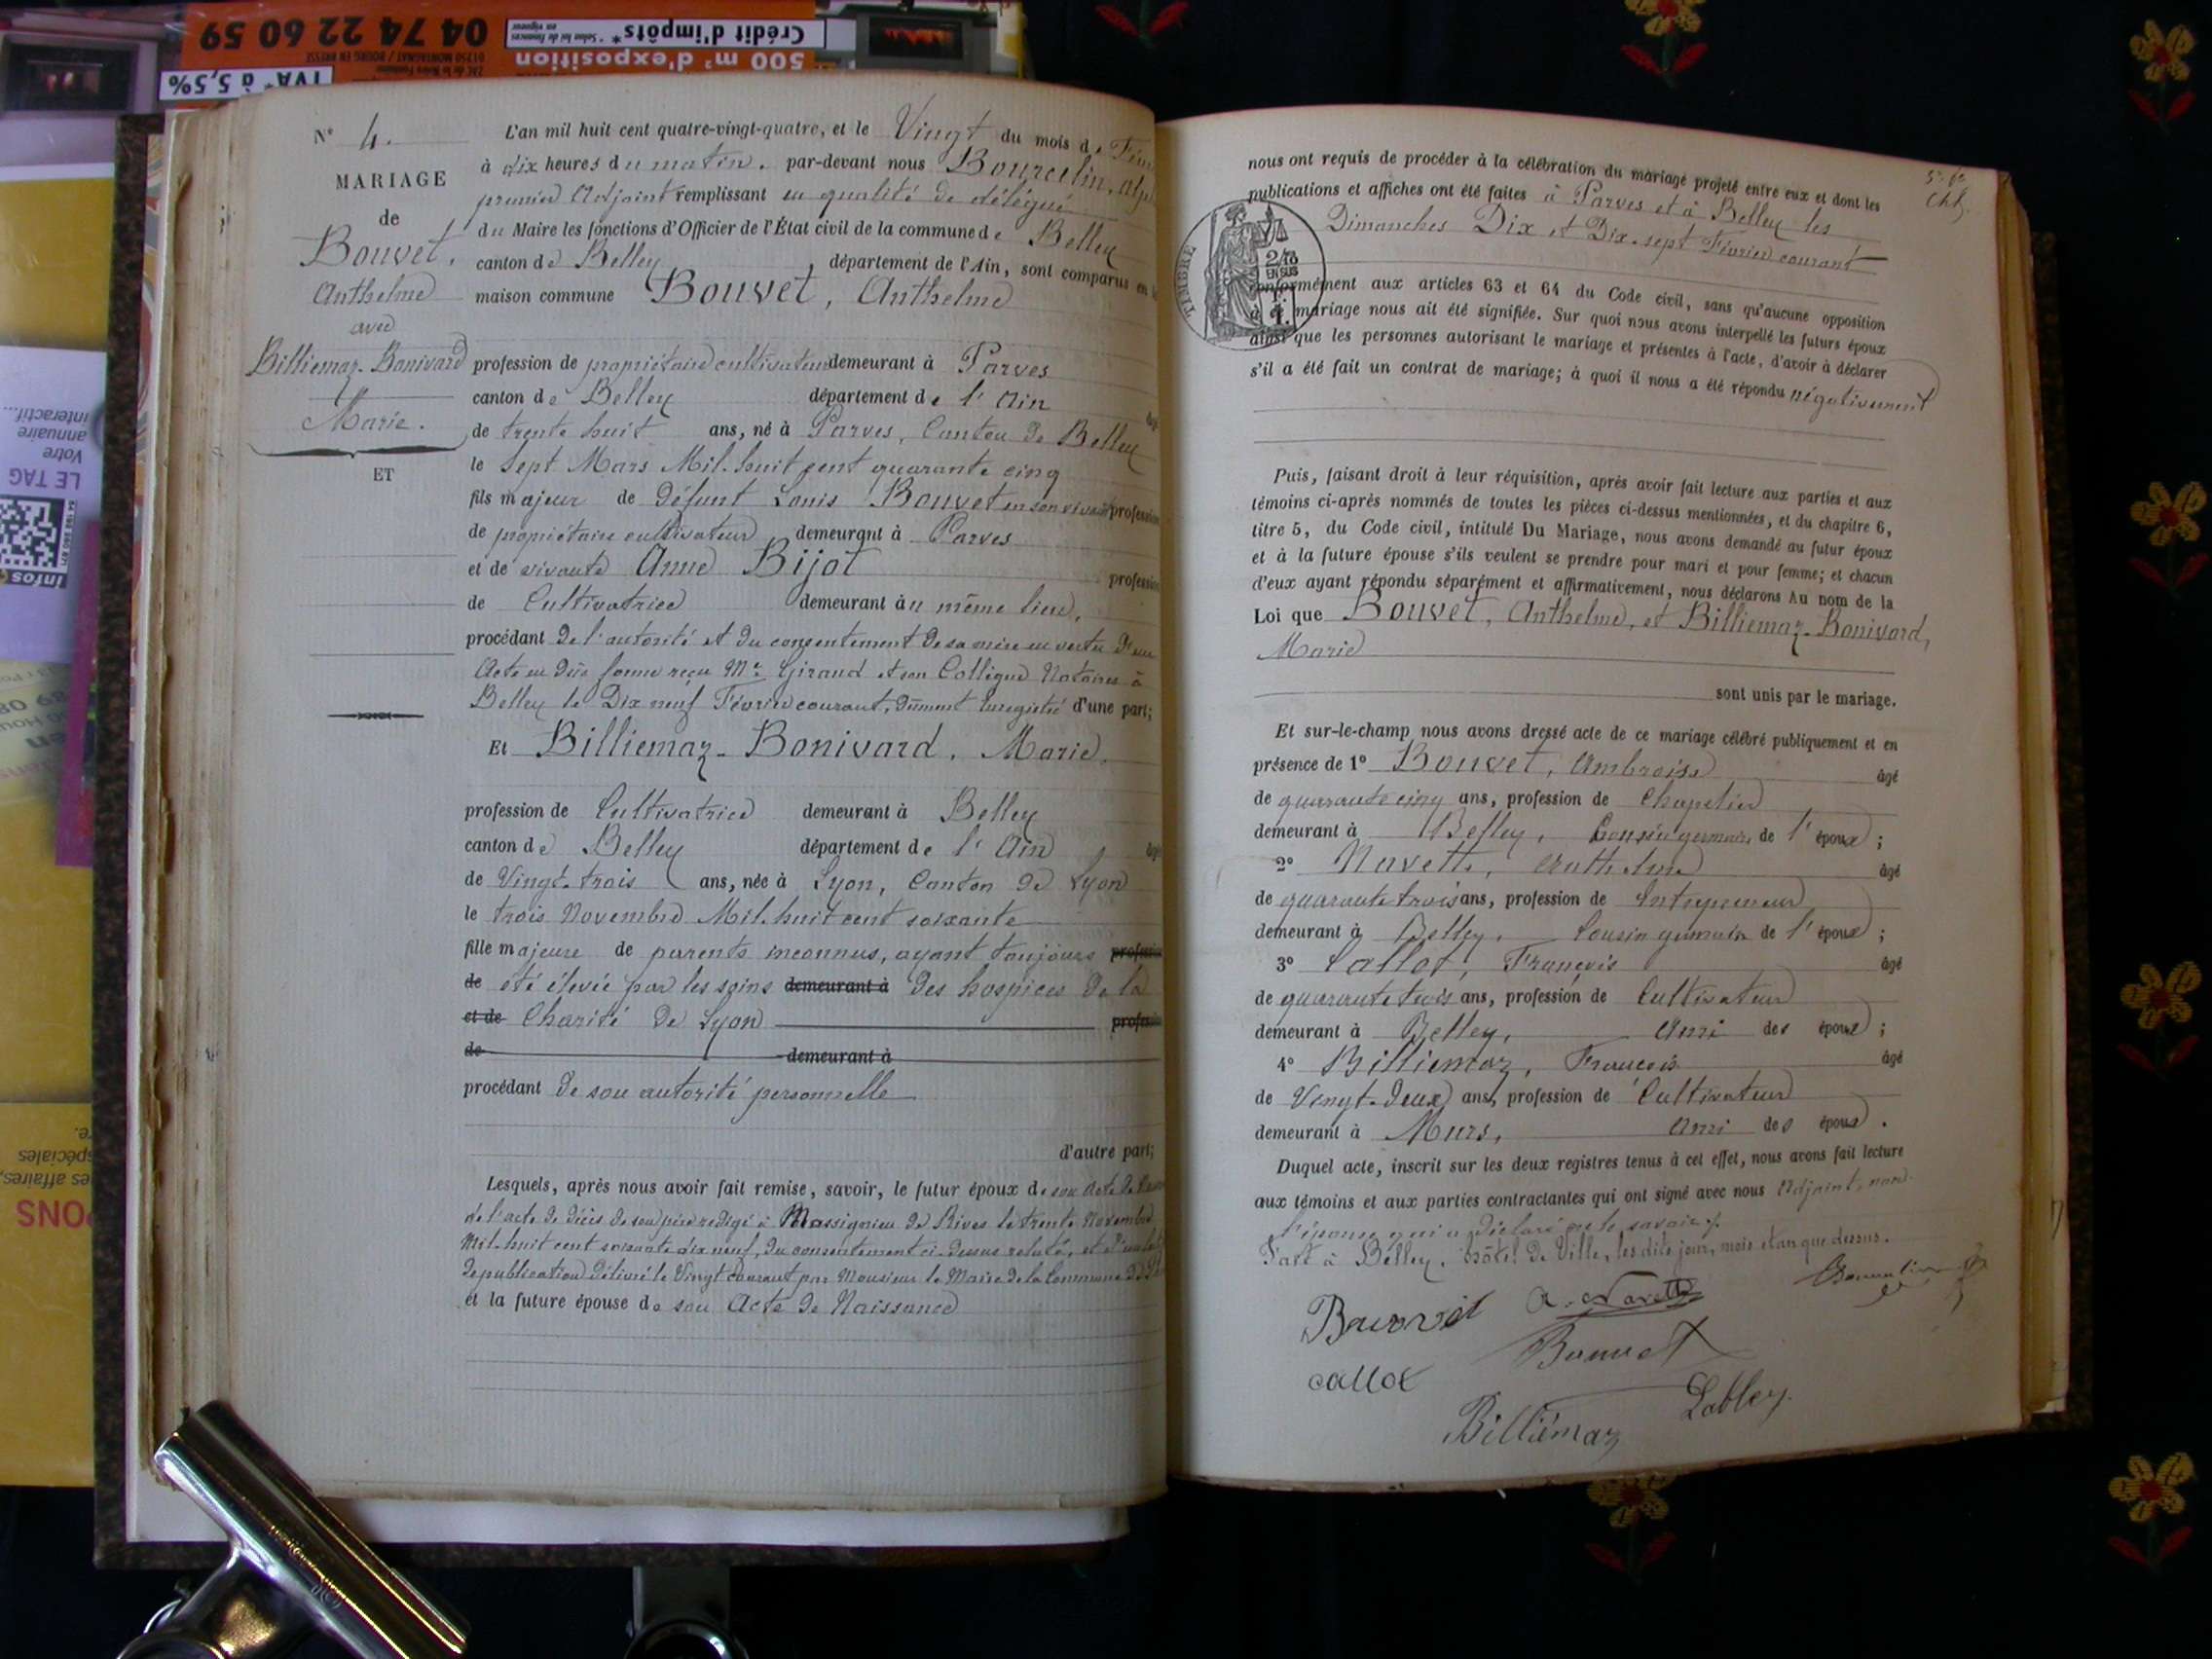 04 74 22 60 59
Crédit d'impôts*
500 m² d'exposition
TVA* à 5,5%
N° 4.
MARIAGE
de
Bouvet,
Anthelme
avec
Billiemaz-Bonivard
Marie.
ET
L'an mil huit cent quatre-vingt-quatre, et le Vingt du mois de
à dix heures du matin. par-devant nous Bourcelin,
premier Adjoint remplissant en qualité de délégué
du Maire les fonctions d'Officier de l'État civil de la commune de Belley
canton de Belley, département de l'Ain, sont comparus en
maison commune Bouvet, Anthelme
profession de propriétaire cultivateur demeurant à Parves
canton de Belley département de l'Ain
de trente huit ans, né à Parves, Canton de Belley
le Sept Mars Mil-huit cent quarante cinq
fils majeur de défunt Louis Bouvet en son vivant profession
de propriétaire cultivateur demeurant à Parves
et de vivante Anne Bijot profession
de Cultivatrice demeurant au même lieu,
procédant de l'autorité et du consentement de sa mère en vertu d'un
Acte en due forme reçu Me Giraud et son Collègue Notaires à
Belley le Dix neuf Février courant, dûment Enregistré d'une part;
Et Billiemaz-Bonivard, Marie,
profession de Cultivatrice demeurant à Belley
canton de Belley département de l'Ain
de Vingt-trois ans, née à Lyon, Canton de Lyon
le trois Novembre Mil-huit cent soixante
fille majeure de parents inconnus, ayant toujours profession
de été élevée par les soins demeurant à des hospices de la
et de Charité de Lyon profession
de demeurant à
procédant de son autorité personnelle
d'autre part;
Lesquels, après nous avoir fait remise, savoir, le futur époux de son Acte de
de l'acte de décès de son père rédigé à Massignieu de Rives le trente Novembre
Mil-huit cent soixante dix neuf, du consentement ci-dessus relaté, et d'un
de publication délivré le Vingt courant par Monsieur le Maire de la Commune de
et la future épouse de son Acte de Naissance
nous ont requis de procéder à la célébration du mariage projeté entre eux et dont les
publications et affiches ont été faites à Parves et à Belley les
Dimanches Dix et Dix-sept Février courant
TIMBRE
EN SUS
conformément aux articles 63 et 64 du Code civil, sans qu'aucune opposition
à ce mariage nous ait été signifiée. Sur quoi nous avons interpellé les futurs époux
ainsi que les personnes autorisant le mariage et présentes à l'acte, d'avoir à déclarer
s'il a été fait un contrat de mariage; à quoi il nous a été répondu négativement
Puis, faisant droit à leur réquisition, après avoir fait lecture aux parties et aux
témoins ci-après nommés de toutes les pièces ci-dessus mentionnées, et du chapitre 6,
titre 5, du Code civil, intitulé Du Mariage, nous avons demandé au futur époux
et à la future épouse s'ils veulent se prendre pour mari et pour femme; et chacun
d'eux ayant répondu séparément et affirmativement, nous déclarons Au nom de la
Loi que Bouvet, Anthelme, et Billiemaz-Bonivard,
Marie
sont unis par le mariage.
Et sur-le-champ nous avons dressé acte de ce mariage célébré publiquement et en
présence de 1° Bouvet, Ambroise âgé
de quarante cinq ans, profession de Chapelier
demeurant à Belley, Cousin germain de l'époux;
2° Navette, Anthelme âgé
de quarante trois ans, profession de Entrepreneur
demeurant à Belley, Cousin germain de l'époux;
3° Callot, François âgé
de quarante trois ans, profession de Cultivateur
demeurant à Belley, Ami des époux;
4° Billiemaz, François âgé
de Vingt-deux ans, profession de Cultivateur
demeurant à Murs, Ami des époux.
Duquel acte, inscrit sur les deux registres tenus à cet effet, nous avons fait lecture
aux témoins et aux parties contractantes qui ont signé avec nous Adjoint, non
l'épouse qui a déclaré ne le savoir.
Fait à Belley, hôtel de Ville, les dits jour, mois et an que dessus.
Bouvet A. Navette
Bouvet
callot
Billiémaz